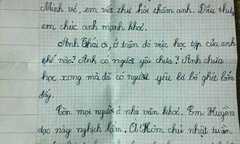 Minh về, em viết thư hỏi thăm anh. Đầu thư
em chúc anh mạnh khoẻ.
Anh Khải ơi, ở trần dó việc học tập của anh
thế nào? Anh có người yêu chưa? Anh chưa
học xong mà đã có người yêu là bố ghét lắm
đấy.
Còn mọi người ở nhà vẫn khoẻ. Em Huyền
dạo này nghịch lắm. Chị Hôm chủ nhật tuần